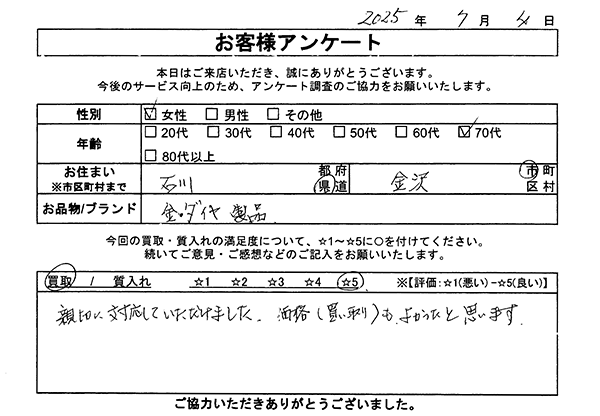 2025 年 7 月 4 日
お客様アンケート
本日はご来店いただき、誠にありがとうございます。
今後のサービス向上のため、アンケート調査のご協力をお願いいたします。
性別 ☑女性 □男性 □その他
年齢 □20代 □30代 □40代 □50代 □60代 ☑70代
□80代以上
お住まい ※市区町村まで 石川 都府県道 金沢 市町区村
お品物/ブランド 金・ダイヤ製品
今回の買取・質入れの満足度について、☆1～☆5に○を付けてください。
続いてご意見・ご感想などのご記入をお願いいたします。
買取 / 質入れ ☆1 ☆2 ☆3 ☆4 ☆5 ※【評価:☆1(悪い)-☆5(良い)】
親切に対応していただけました。価格(買い取り)も、よかったと思います。
ご協力いただきありがとうございました。